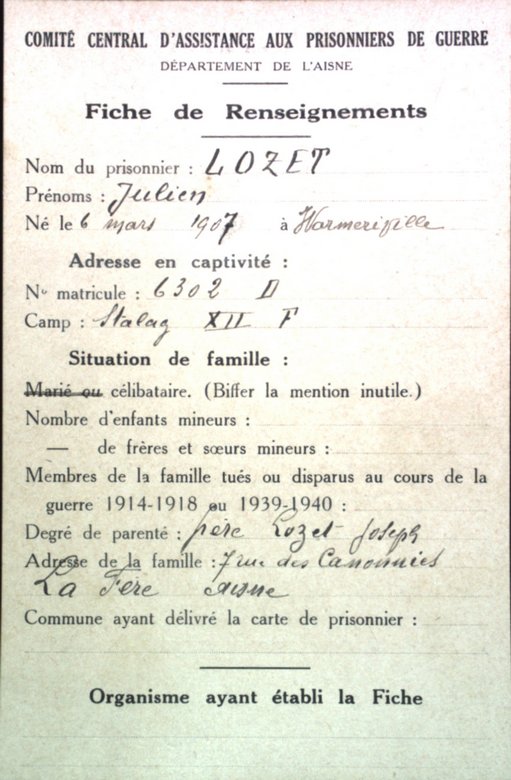 COMITÉ CENTRAL D'ASSISTANCE AUX PRISONNIERS DE GUERRE
DÉPARTEMENT DE L'AISNE
Fiche de Renseignements
Nom du prisonnier : LOZET
Prénoms : Julien
Né le 6 mars 1907 à
Adresse en captivité :
N° matricule : 6302 D
Camp : Stalag XII F
Situation de famille :
Marié ou célibataire. (Biffer la mention inutile.)
Nombre d'enfants mineurs :
— de frères et sœurs mineurs :
Membres de la famille tués ou disparus au cours de la
guerre 1914-1918 ou 1939-1940 :
Degré de parenté : père Lozet Joseph
Adresse de la famille : 7 rue des
La Fère Aisne
Commune ayant délivré la carte de prisonnier :
Organisme ayant établi la Fiche